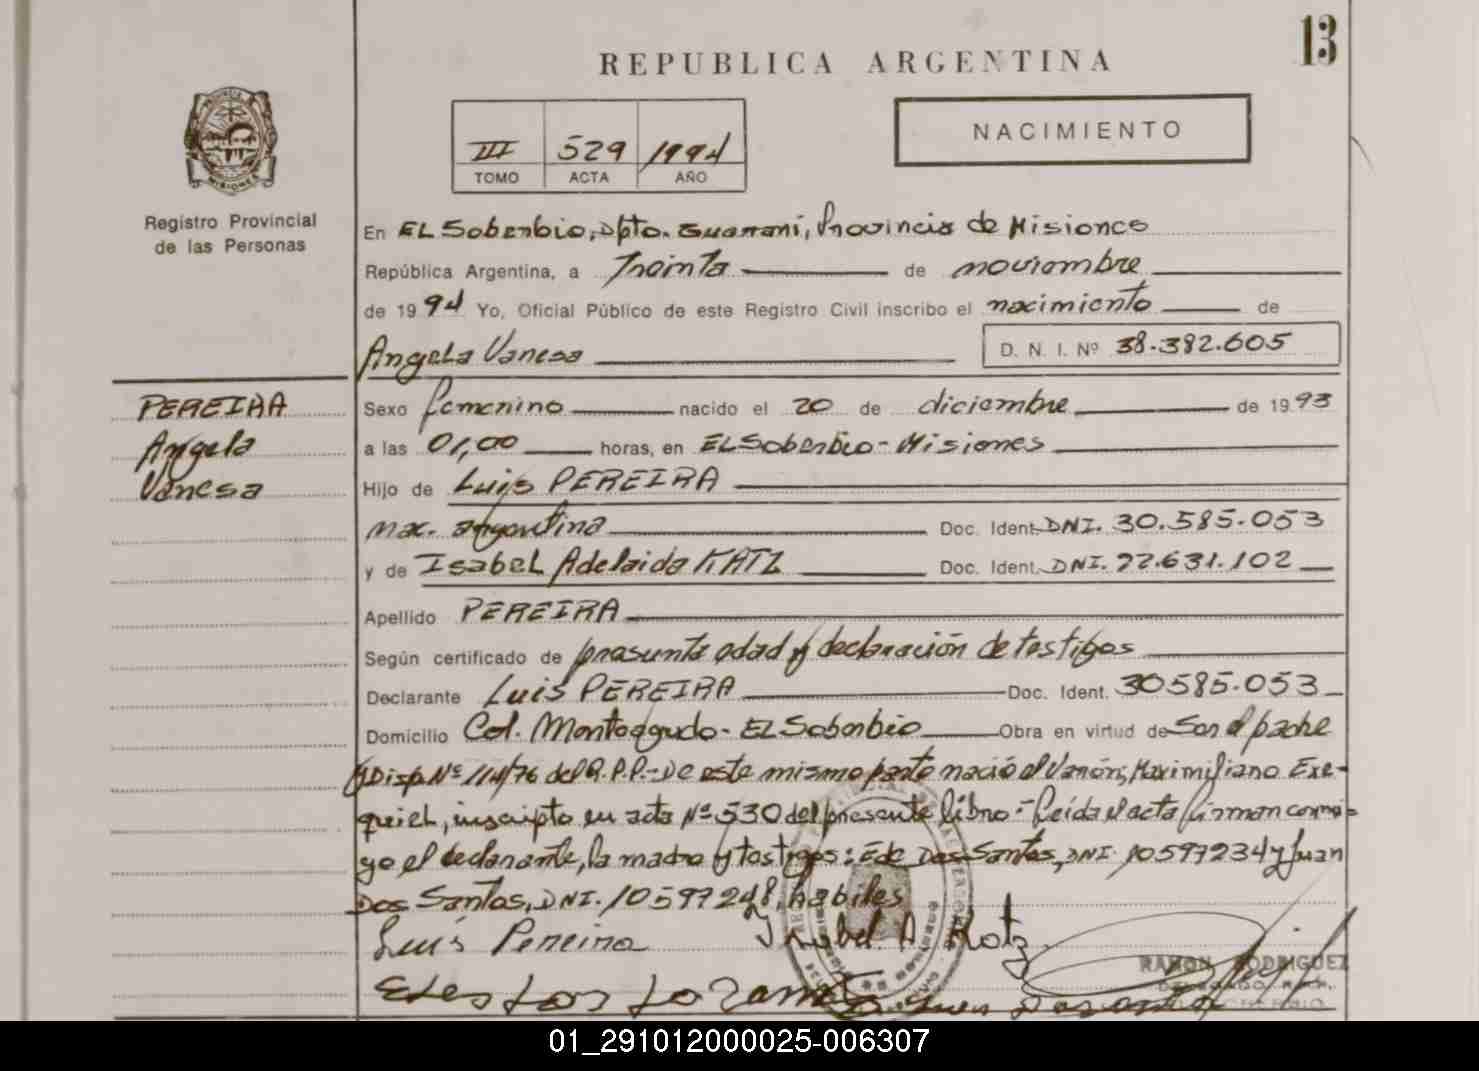 13
REPUBLICA ARGENTINA
NACIMIENTO
III 529 1994
TOMO ACTA AÑO
MISIONES
Registro Provincial
de las Personas
En EL Soberbio, Dpto. Guarani, Provincia de Misiones
República Argentina, a Treinta de noviembre
de 1994 Yo, Oficial Público de este Registro Civil inscribo el nacimiento de
Angela Vanesa D. N. I. Nº 38.382.605
PEREIRA
Angela
Vanesa
Sexo femenino nacido el 20 de diciembre de 1993
a las 01,00 horas, en EL Soberbio - Misiones
Hijo de Luis PEREIRA
nac. argentina Doc. Ident. DNI. 30.585.053
y de Isabel Adelaida KATZ Doc. Ident. DNI. 22.631.102
Apellido PEREIRA
Según certificado de presunta edad y declaración de testigos
Declarante Luis PEREIRA Doc. Ident. 30585.053
Domicilio Col. Monteagudo - EL Soberbio Obra en virtud de Ser el padre
y Disp. Nº 114/76 del R.P.P. - De este mismo parto nació el Varón, Maximiliano Exe-
quiel, inscripto en acta Nº 530 del presente libro - Leída el acta firman conmi-
go el declarante, la madre y testigos: Ede Dos Santos, DNI 10597234 y Juan
Dos Santos, DNI. 10597248, habiles
Luis Pereira Isabel A. Katz
RAMON RODRIGUEZ
01_291012000025-006307